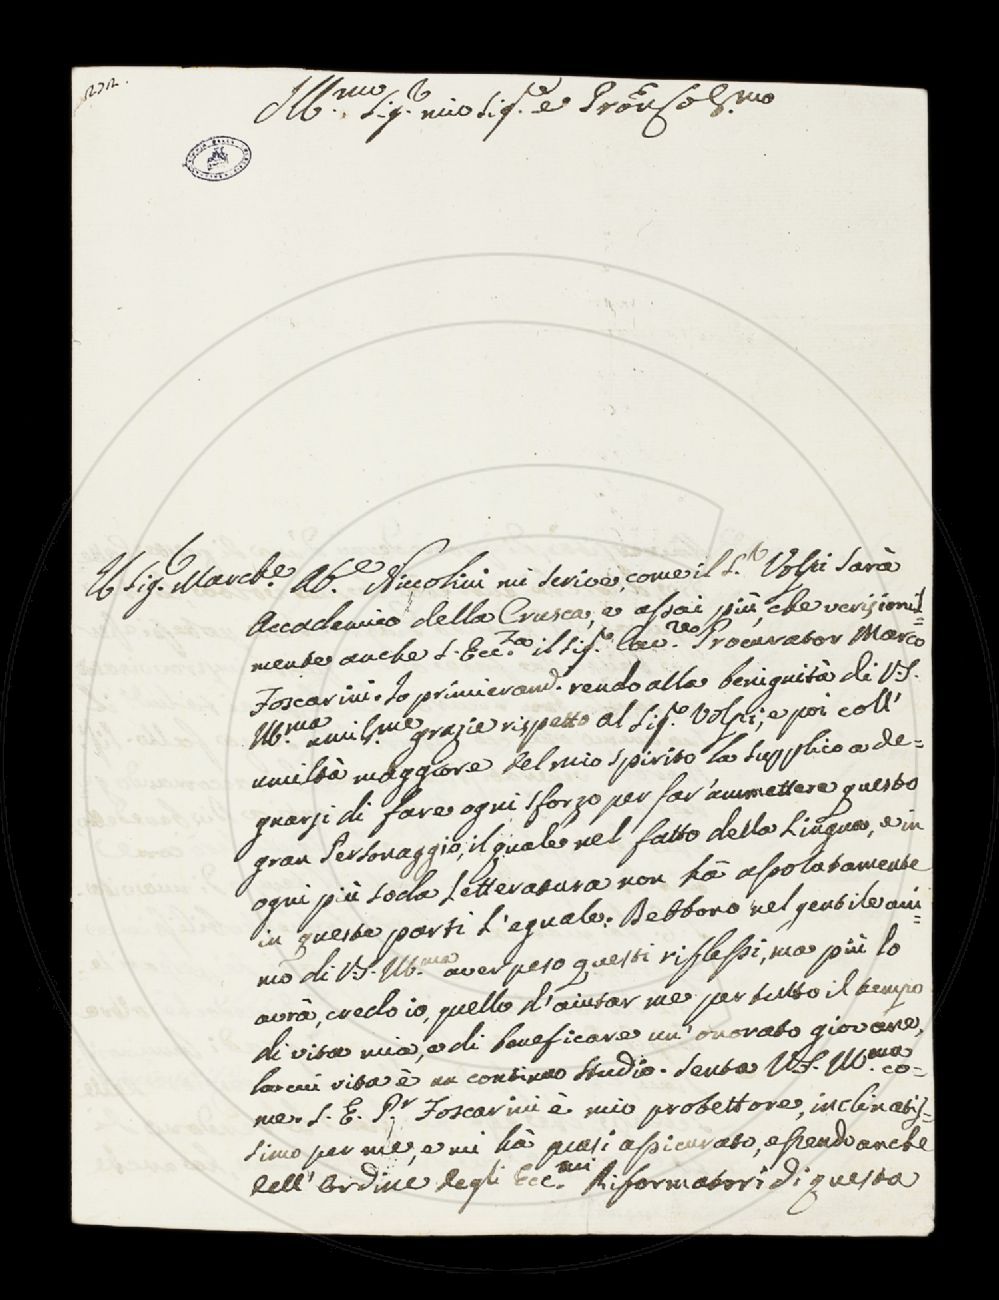 232.
Ill.mo Sig.r mio Sig.e e Pron Col.mo
Il Sig.r March.e Ab.e Niccolini mi scrive, come il S.r Volpi sarà
Accademico della Crusca, e assai più, che verisimil=
mente anche S. Ecc.za il Sig.r Cav.re Procurator Marco
Foscarini. Io primieram. rendo alla benignità di V.S.
Ill.ma umil.me grazie rispetto al Sig.r Volpi; e poi coll'
umiltà maggiore del mio spirito la supplico a de=
gnarsi di fare ogni sforzo per far'ammettere questo
gran Personaggio, il quale nel fatto della Lingua, e in
ogni più soda Letteratura non hà assolutamente
in queste parti l'eguale. Debbono nel gentile ani=
mo di V.S. Ill.ma aver peso questi riflessi, ma più lo
avrà, credo io, quello d'aiutar me per tutto il tempo
di vita mia, e di beneficare un' onorato giovane,
la cui vita è un continuo studio. Senta V.S. Ill.ma co=
me. S. E. P.r Foscarini è mio protettore, inclinatis=
simo per me, e mi hà quasi assicurato, essendo anche
dell'Ordine degli Ecc.mi Riformatori di questa